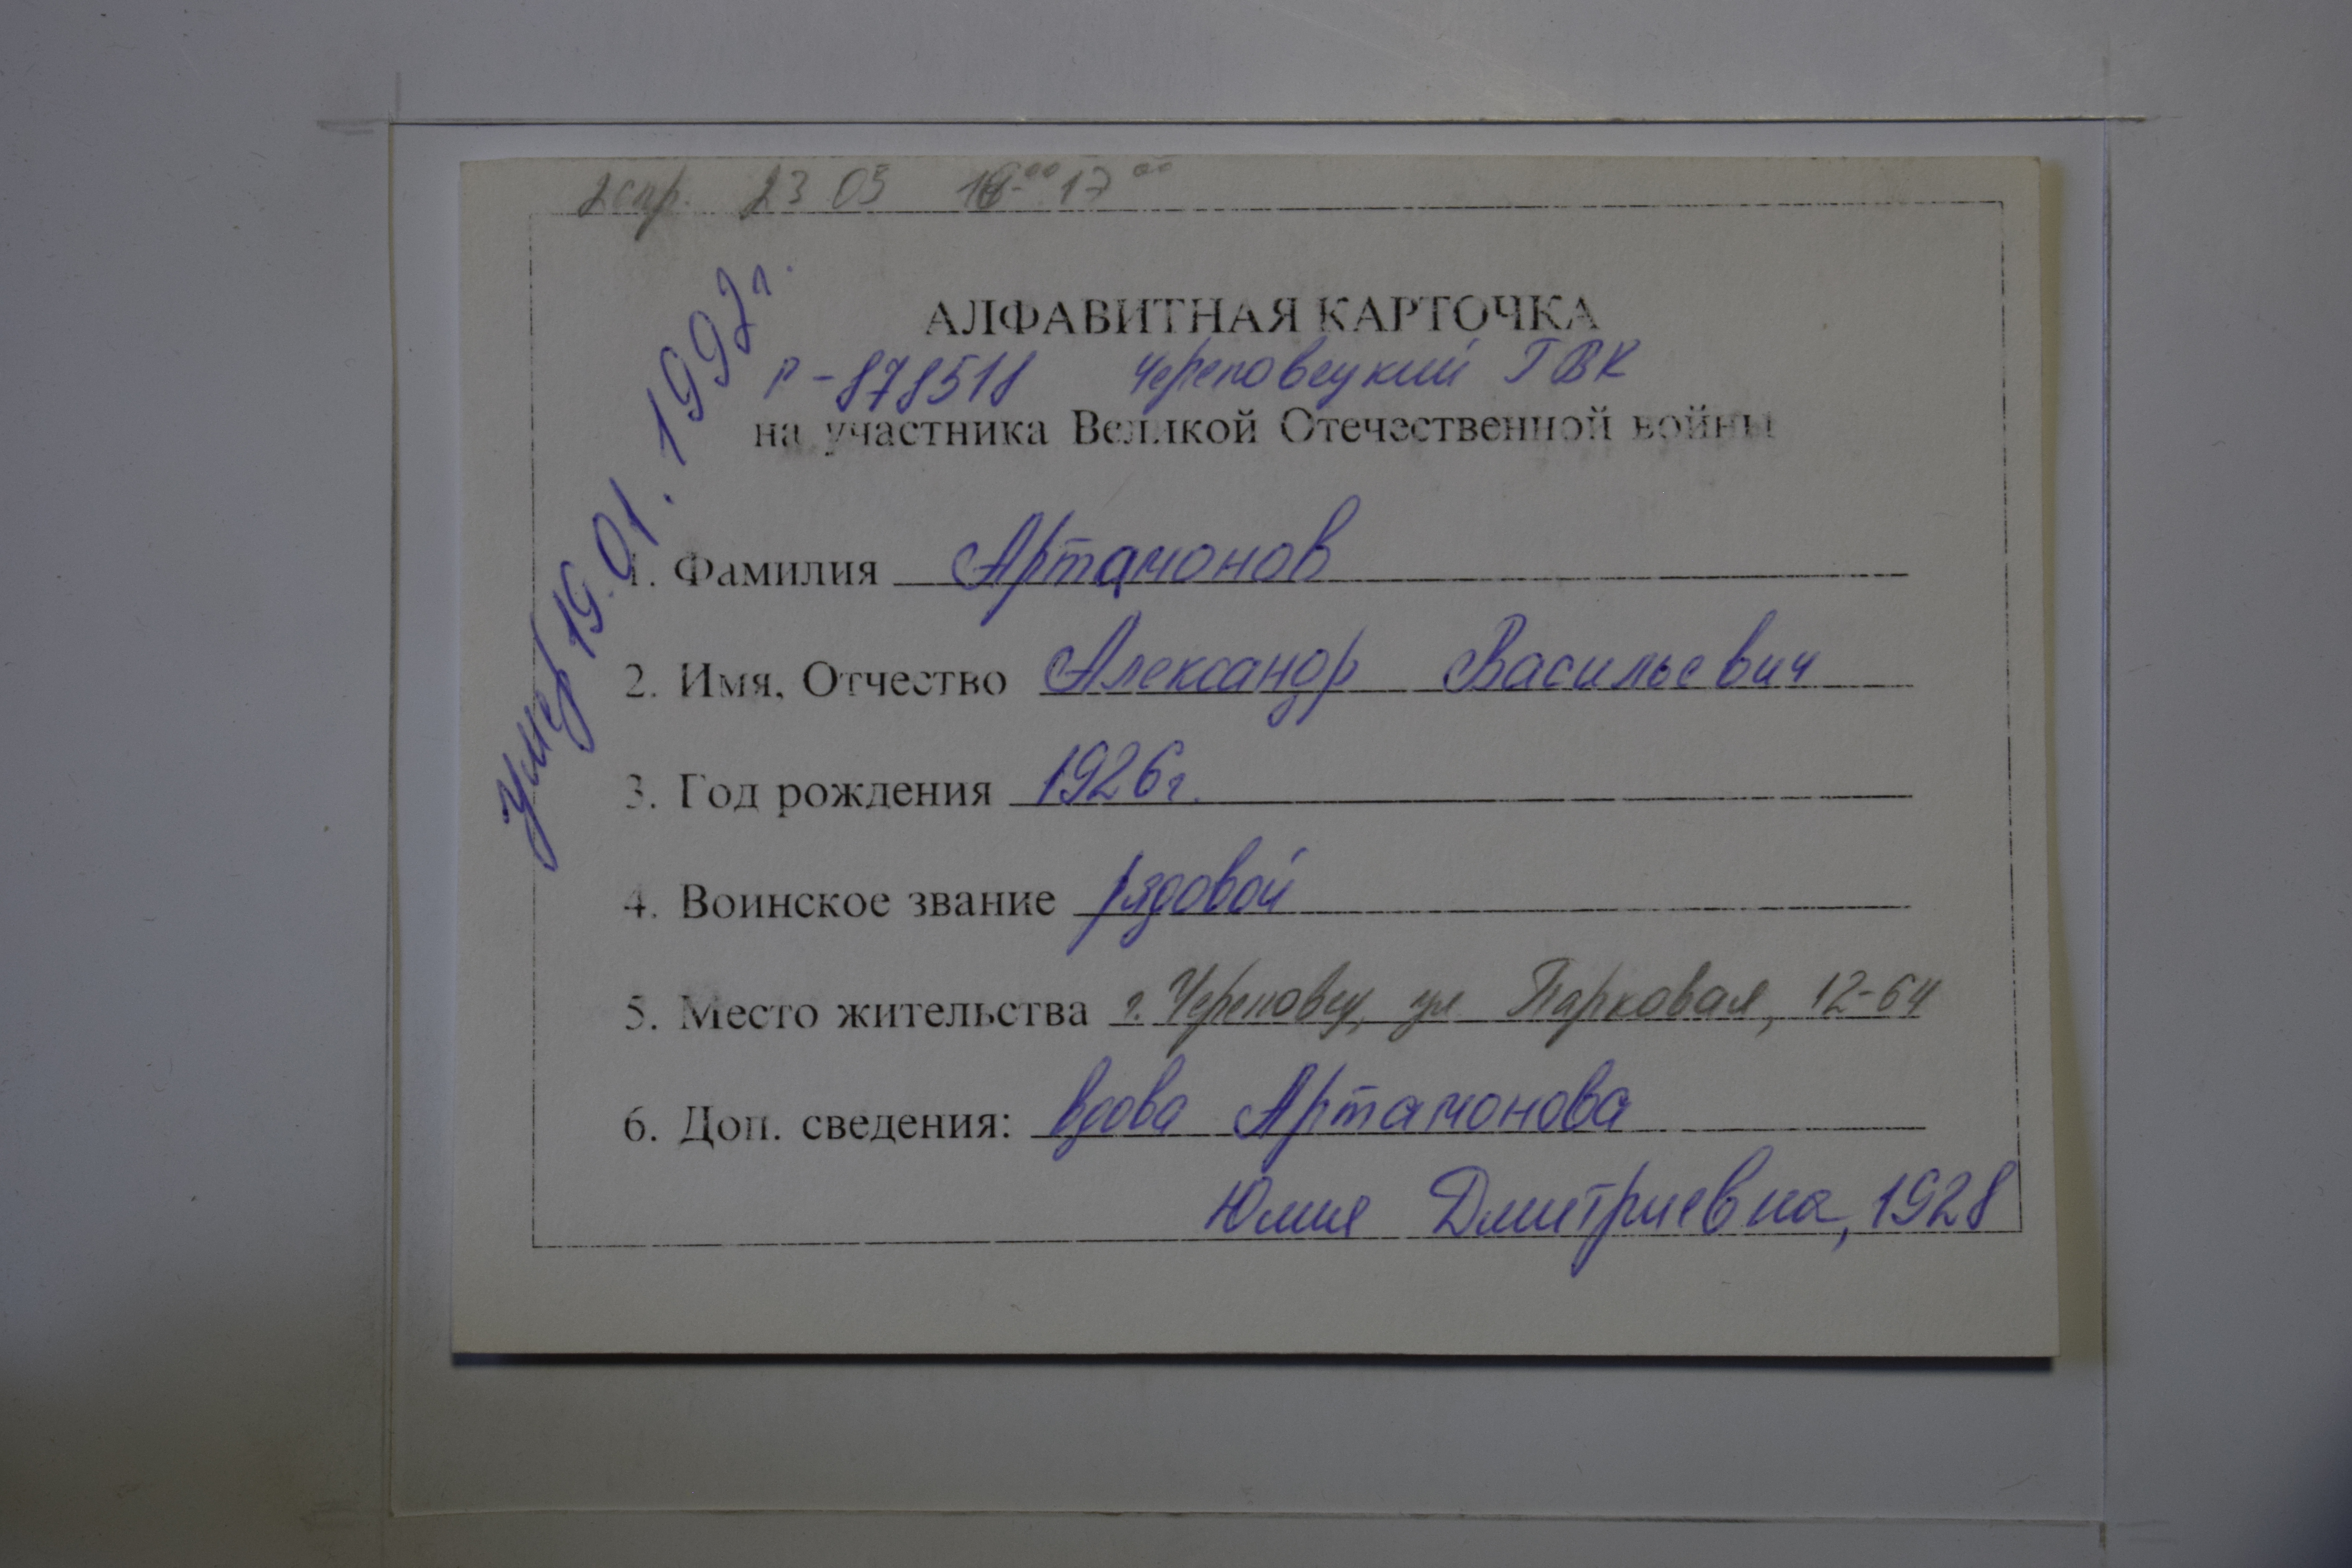 2 спр. 23 05 16-00 17 00
АЛФАВИТНАЯ КАРТОЧКА
Р-878518 Череповецкий ГВК
на участника Великой Отечественной войны
Умер 19.01.1992г.
1. Фамилия Артамонов
2. Имя, Отчество Александр Васильевич
3. Год рождения 1926г.
4. Воинское звание рядовой
5. Место жительства г. Череповец, ул Парковая, 12-64
6. Доп. сведения: вдова Артамонова
Юлия Дмитриевна, 1928